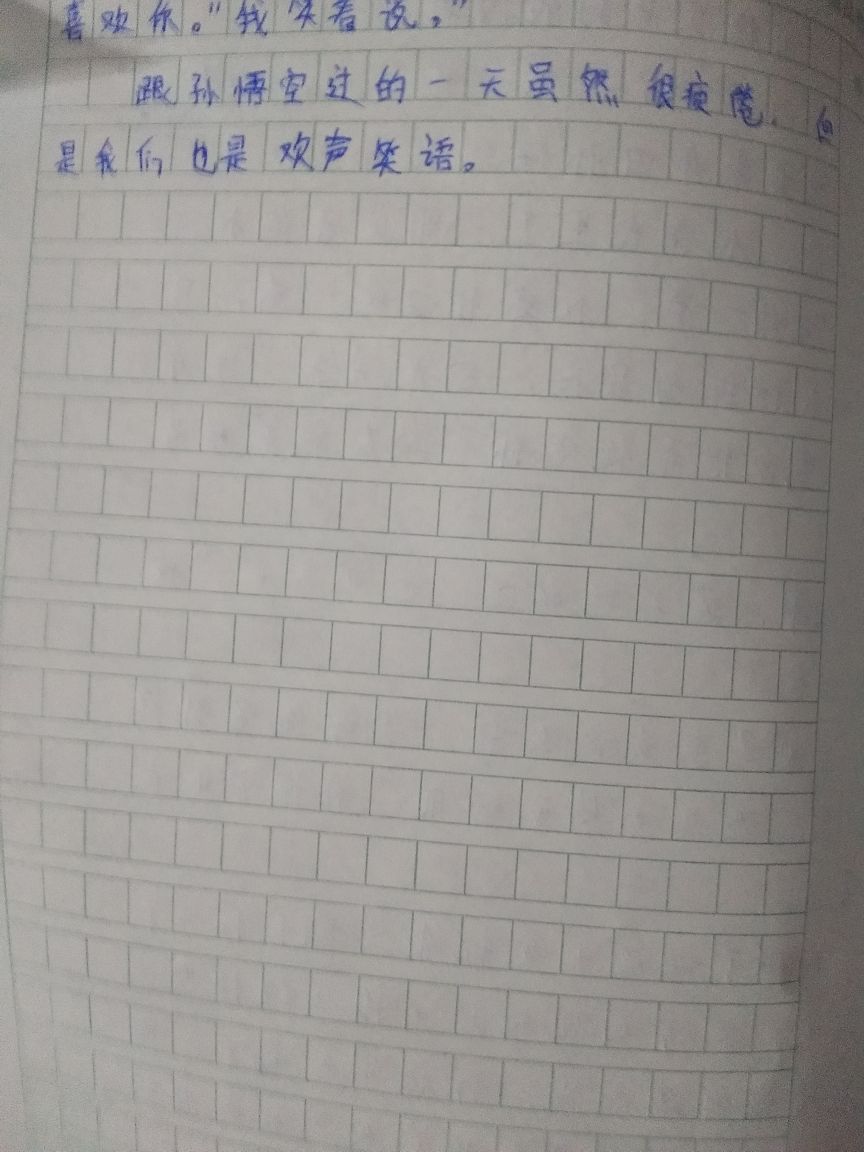 喜欢你。"我笑着说。"
跟孙悟空过的一天虽然很疲惫,但
是我们也是欢声笑语。